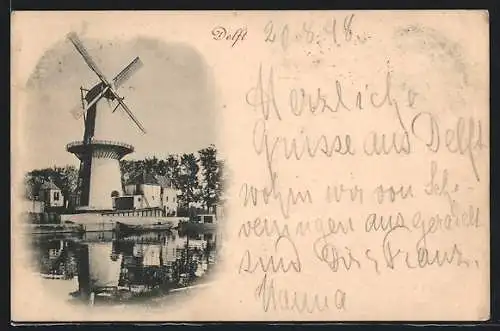 Delft
20.8.98.
Herzliche
Grüsse aus Delft
wohin wir von Sch
veningen ausgerückt
sind Dir, Franz.
Hanna